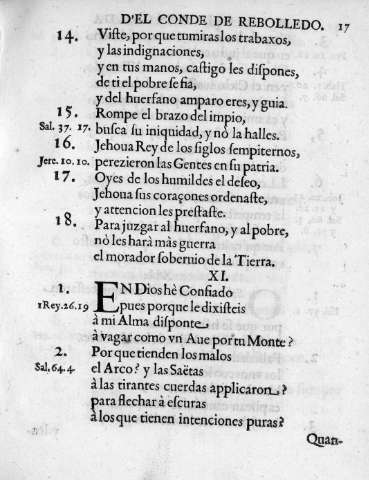 D'EL CONDE DE REBOLLEDO. 17
14. Viste, por que tu miras los trabaxos,
y las indignaciones,
y en tus manos, castigo les dispones,
de ti el pobre se fia,
y del huerfano amparo eres, y guia.
15. Rompe el brazo del impio,
Sal. 37. 17. busca su iniquidad, y nò la halles.
16. Jehoua Rey de los siglos sempiternos,
Jere. 10. 10. perezieron las Gentes en su patria.
17. Oyes de los humildes el deseo,
Jehoua sus coraçones ordenaste,
y attencion les prestaste.
18. Para juzgar al huerfano, y al pobre,
nò les harà màs guerra
el morador soberuio de la Tierra.
XI.
1. EN Dios hè Confiado
1 Rey. 26. 19 pues porque le dixisteis
à mi Alma disponte
à vagar como vn Aue por tu Monte?
2. Por que tienden los malos
Sal, 64. 4 el Arco? y las Saëtas
à las tirantes cuerdas applicaron?
para flechar à escuras
à los que tienen intenciones puras?
Quan-